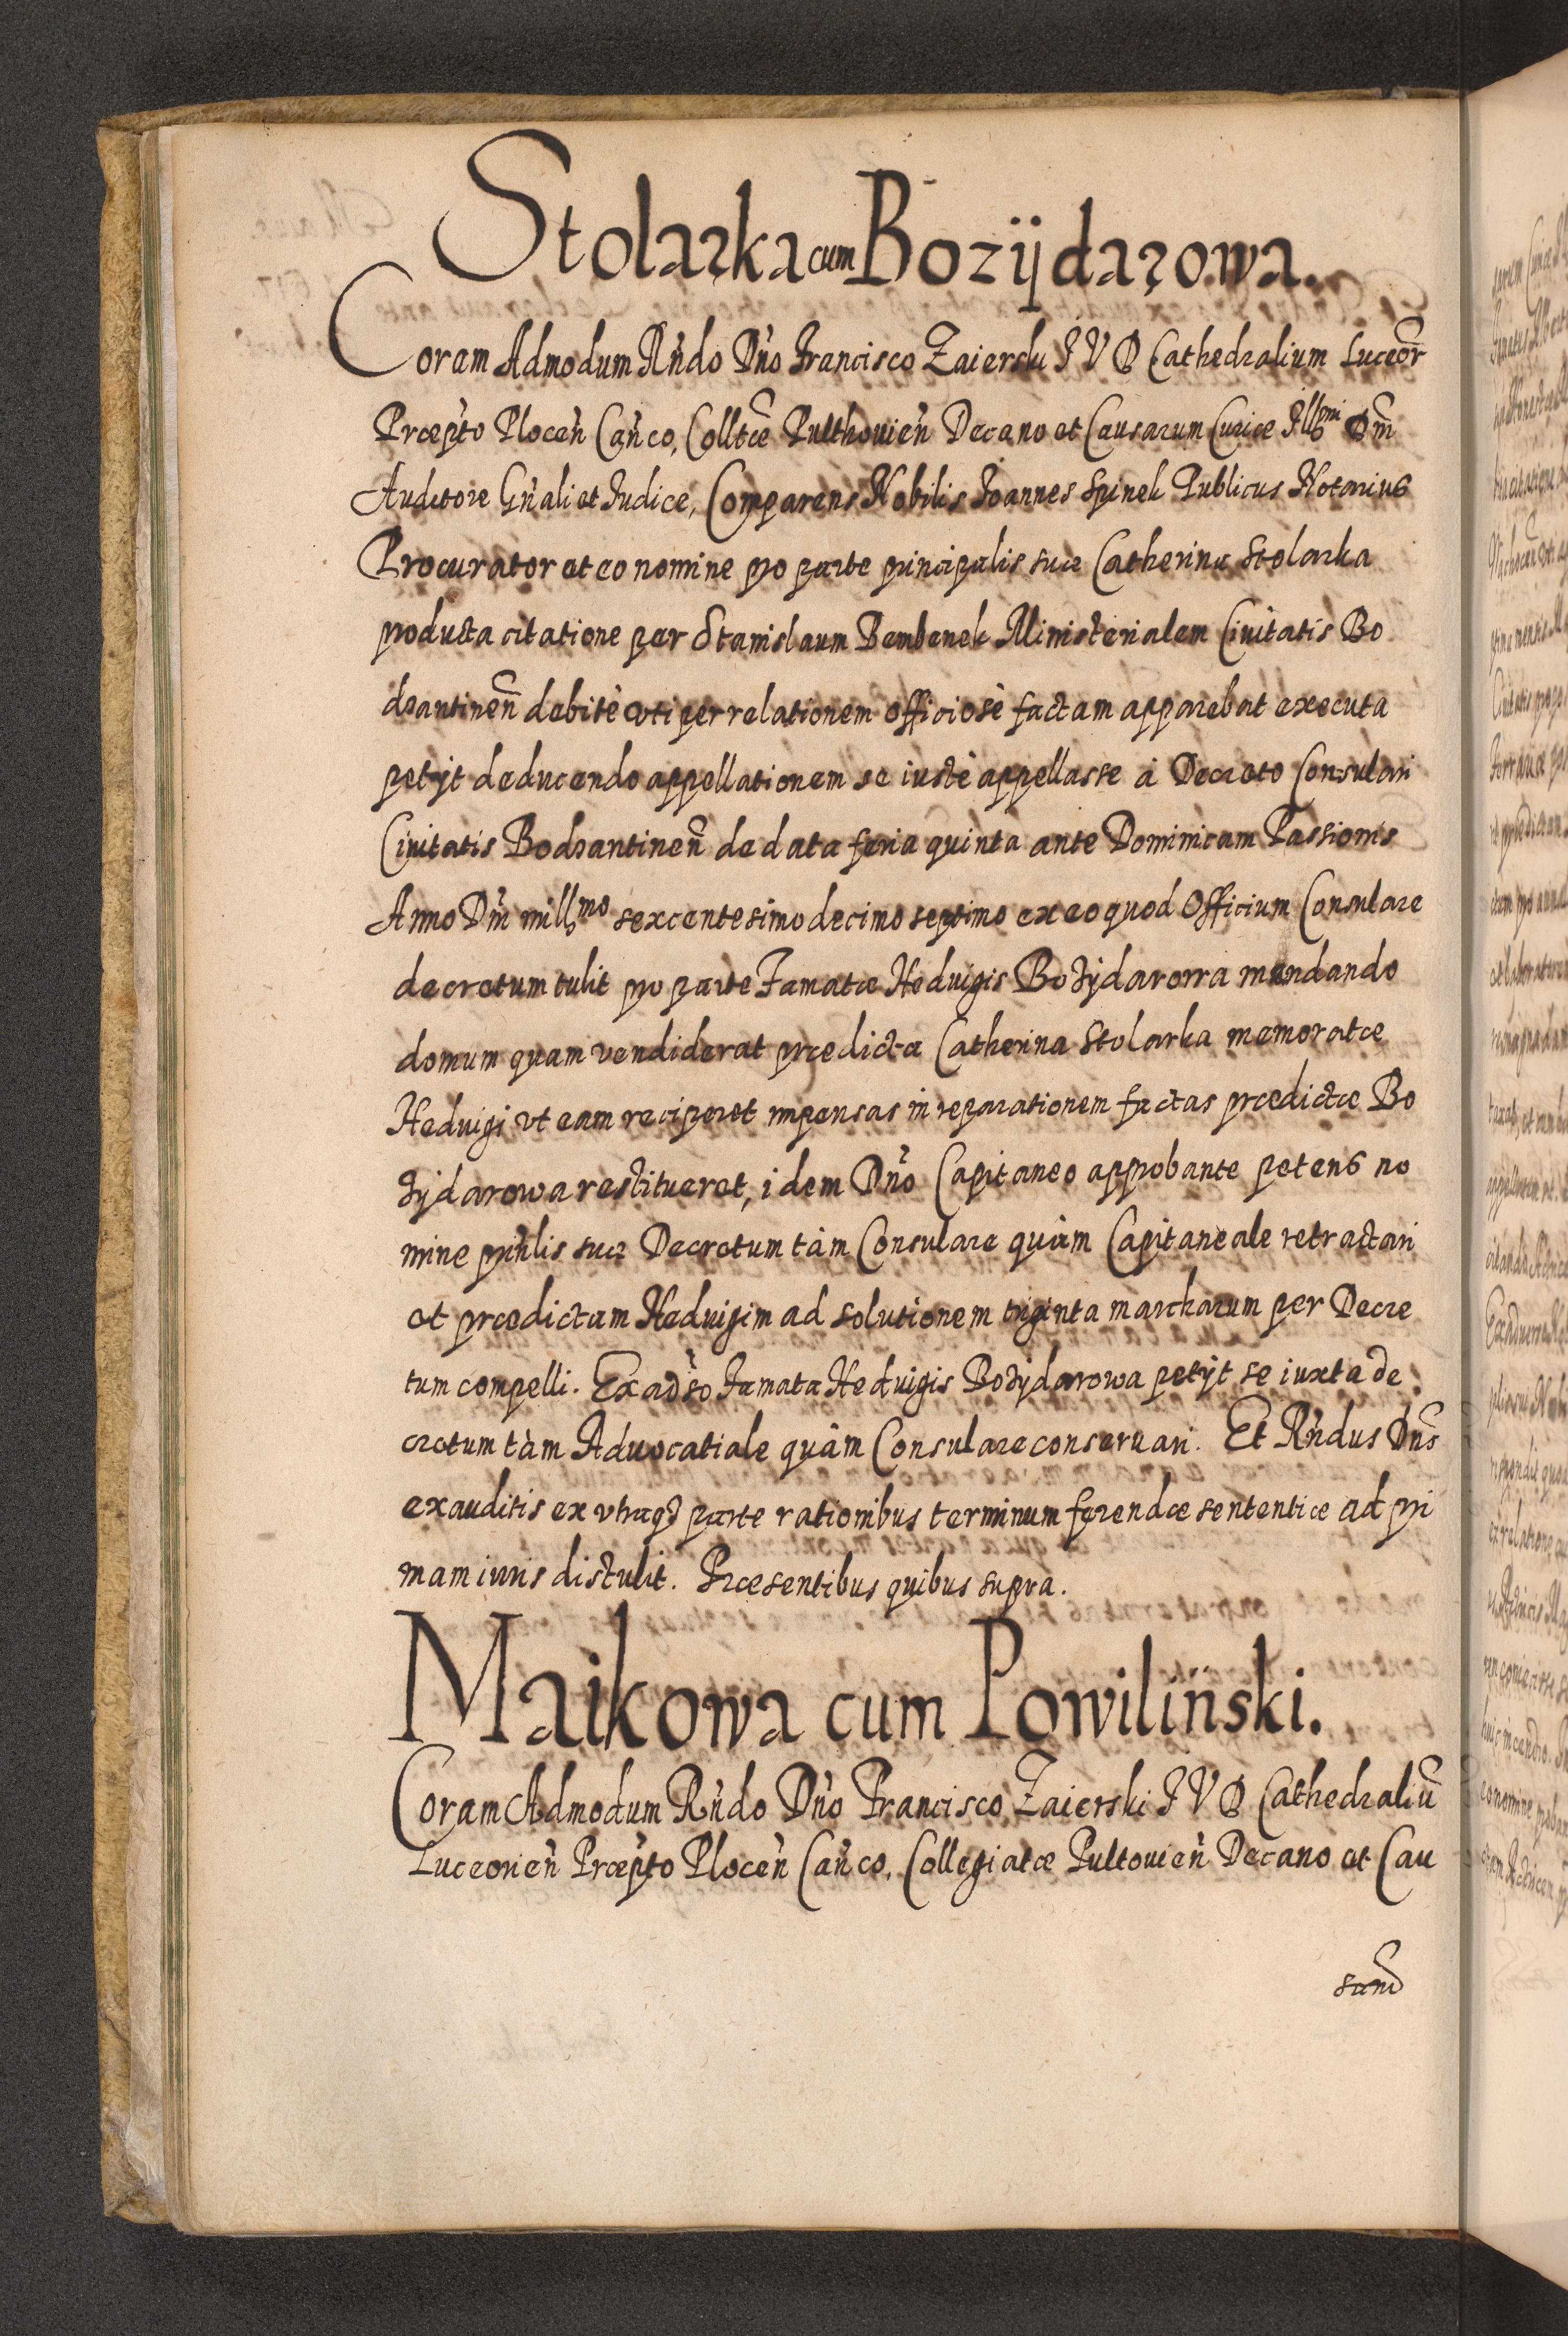 Stolarka cum Bozÿdarowa.
Coram Admodum Rńdo Dńo Francisco Zaierski I V D Cathedralium Luceor̃
Præp̃to Plocen̄ Can̄co, Colltæ Pulthouien̄ Decano et Causarum Curiæ Illmi Dm̄
Auditore Gn̄ali et Iudice, Comparens Nobilis Ioannes Spinek Publicus Notarius
Procurator et eo nomine pro parte principalis suæ Catherina Stolarka
producta citatione per Stanislaum Bembenek Ministerialem Ciuitatis Bo
dzantinen̄ debitè vti per relationem officiosè factam apparebat executa
petÿt deducendo appellationem se iustè appellasse à Decreto Consulari
Ciuitatis Bodzantinen̄ de data feria quinta ante Dominicam Passionis
Anno Dm̄ millmo sexcentesimo decimo septimo ex eo quod Officium Consulare
decretum tulit pro parte Famatæ Heduigis Bozÿdarowa mandando
domum quam vendiderat prædicta Catherina Stolarka memoratæ
Heduigi vt eam reciperet impensas in reparationem factas prædictæ Bo
zÿdarowa restitueret, idem Dńo Capitaneo approbante petens no
mine prin̄lis suæ Decretum tàm Consulare quàm Capitaneale retractari
et prædictam Heduigim ad solutionem triginta marcharum per Decre
tum compelli. Ex ad̃so Famata Heduigis Bozÿdarowa petÿt se iuxta de
cretum tàm Aduocatiale quàm Consulare conseruari. Et Rńdus Dn̄s
exauditis ex vtraq; parte rationibus terminum ferendæ sententiæ ad pri
mam iuris distulit. Præsentibus quibus supra.
Maikowa cum Powilinski.
Coram Admodum Rńdo Dńo Francisco Zaierski I V D Cathedraliū
Luceorien̄ Præp̃to Plocen̄ Can̄co, Collegiatæ Pultouien̄ Decano et Cau